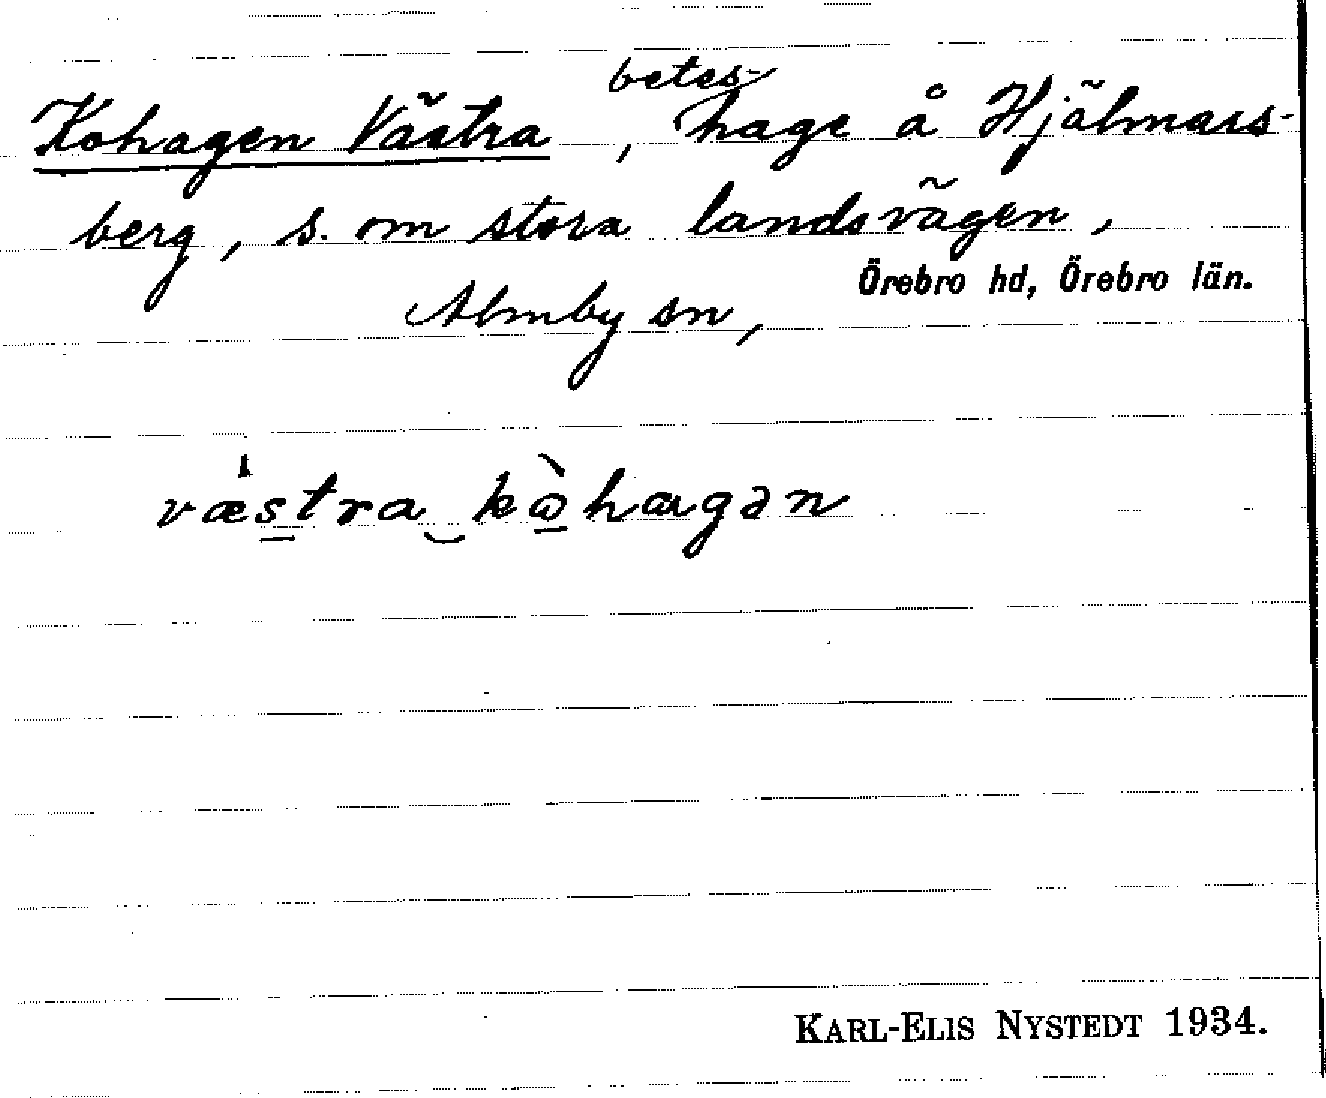 Kohagen Västra, betes-hage å Hjälmars-
berg, s. om stora landsvägen,
Almby sn, Örebro hd, Örebro län.
væstra kωhagən
KARL-ELIS NYSTEDT 1934.